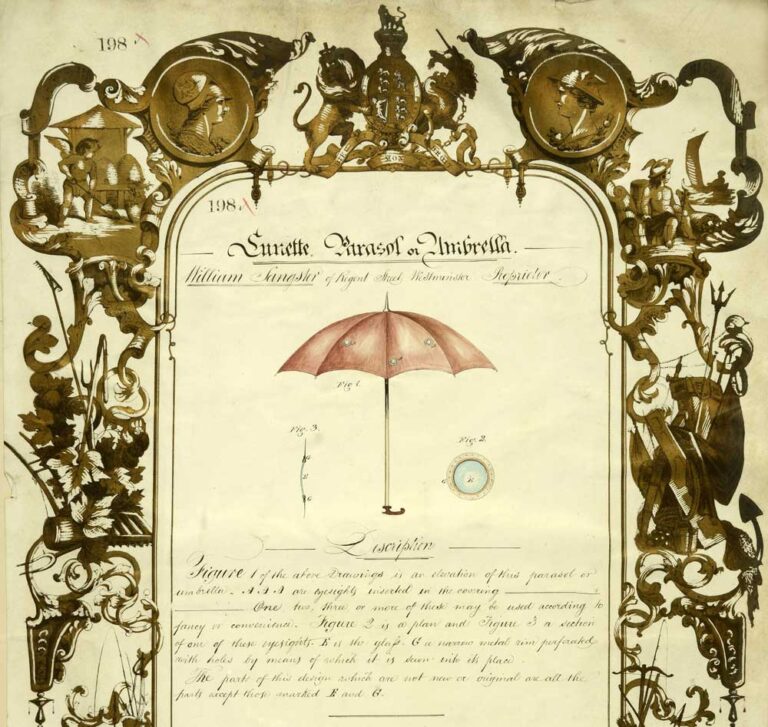 198
198
Lunette. Parasol or Umbrella.
William Sangster of Regent Street, Westminster Proprietor
Fig. 1.
Fig. 3.
G
E
G
Fig. 2.
G
E
Description
Figure 1 of the above Drawings is an elevation of this parasol or
umbrella. A A A are eyesights inserted in the covering
One, two, three or more of these may be used according to
fancy or convenience. Figure 2 is a plan and Figure 3 a section
of one of these eyesights. E is the glass. G a narrow metal rim perforated
with holes by means of which it is sewn into its place.
The parts of this design which are not new or original are all the
parts except those marked E and G.